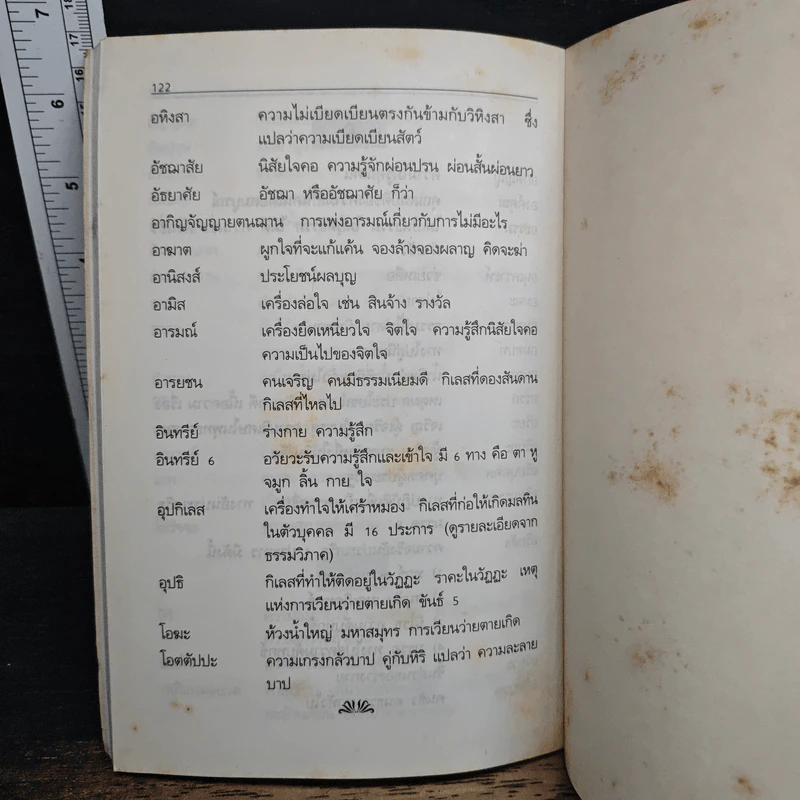 7
18
17
6
5
122
อหิงสา ความไม่เบียดเบียนตรงกันข้ามกับวิหิงสา ซึ่ง
แปลว่าความเบียดเบียนสัตว์
อัชฌาสัย นิสัยใจคอ ความรู้จักผ่อนปรน ผ่อนสั้นผ่อนยาว
อัธยาศัย อัชฌา หรืออัชฌาศัย ก็ว่า
อากิญจัญญายตนฌาน การเพ่งอารมณ์เกี่ยวกับการไม่มีอะไร
อาฆาต ผูกใจที่จะแก้แค้น จองล้างจองผลาญ คิดจะฆ่า
อานิสงส์ ประโยชน์ผลบุญ
อามิส เครื่องล่อใจ เช่น สินจ้าง รางวัล
อารมณ์ เครื่องยึดเหนี่ยวใจ จิตใจ ความรู้สึกนิสัยใจคอ
ความเป็นไปของจิตใจ
อารยชน คนเจริญ คนมีธรรมเนียมดี กิเลสที่ดองสันดาน
กิเลสที่ไหลไป
อินทรีย์ ร่างกาย ความรู้สึก
อินทรีย์ 6 อวัยวะรับความรู้สึกและเข้าใจ มี 6 ทาง คือ ตา หู
จมูก ลิ้น กาย ใจ
อุปกิเลส เครื่องทำใจให้เศร้าหมอง กิเลสที่ก่อให้เกิดมลทิน
ในตัวบุคคล มี 16 ประการ (ดูรายละเอียดจาก
ธรรมวิภาค)
อุปธิ กิเลสที่ทำให้ติดอยู่ในวัฏฏะ ราคะในวัฏฏะ เหตุ
แห่งการเวียนว่ายตายเกิด ขันธ์ 5
โอฆะ ห้วงน้ำใหญ่ มหาสมุทร การเวียนว่ายตายเกิด
โอตตัปปะ ความเกรงกลัวบาป คู่กับหิริ แปลว่า ความละลาย
บาป